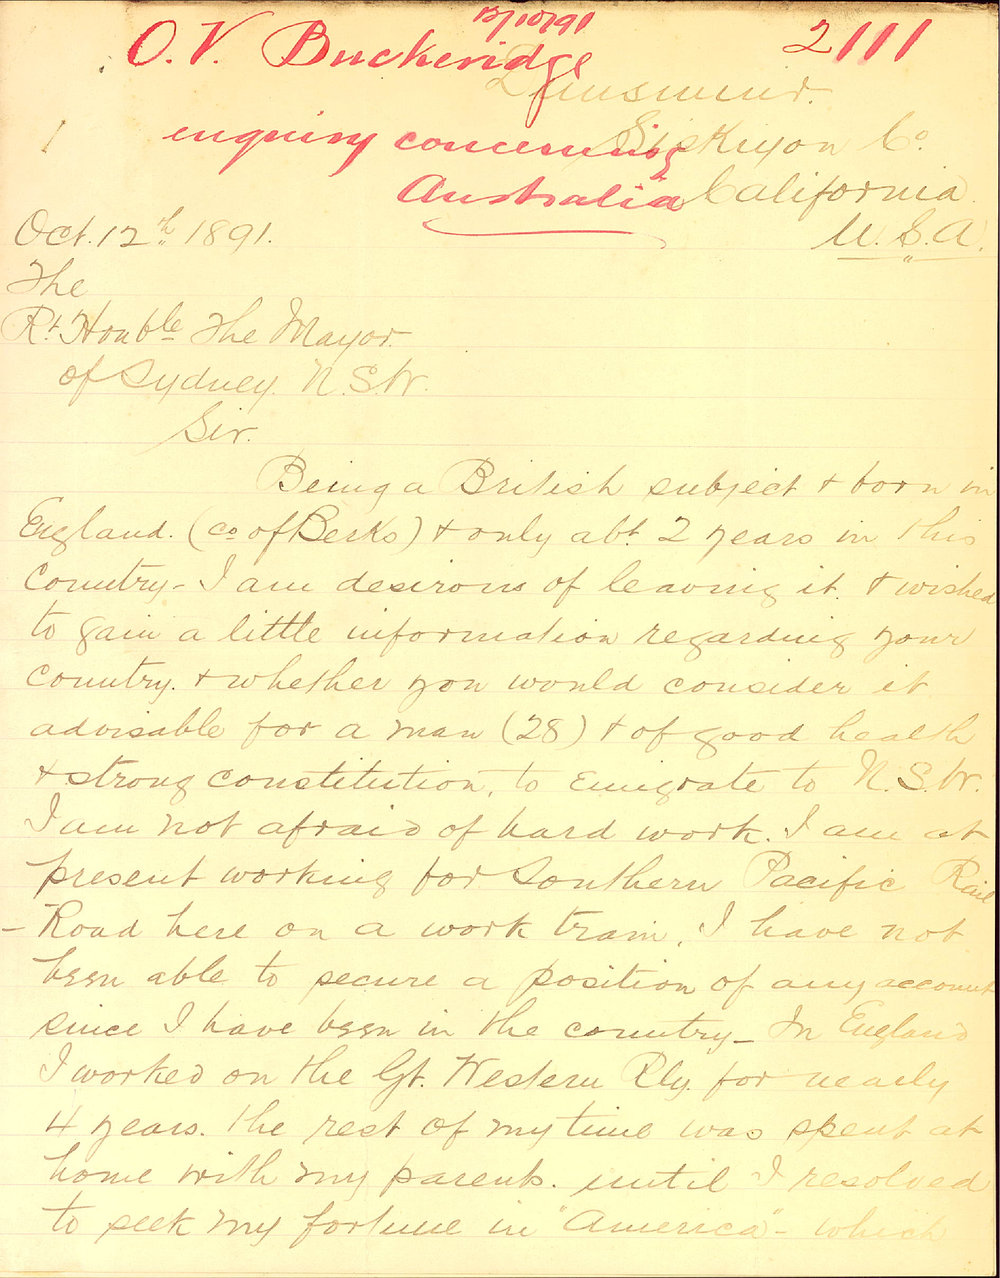 12/10/91
O. V. Buckeridge 2111
Dunsmuir.
enquiry concerning
Siskiyou Co.
Australia
California.
Oct. 12th 1891. U.S.A.
The
Rt. Honble The Mayor
of Sydney. N.S.W.
Sir.
Being a British subject & born in
England. (Co of Berks) & only abt 2 years in this
Country - I am desirous of leaving it. & wished
to gain a little information regarding your
country. & whether you would consider it
advisable for a man (28) & of good health
& strong constitution, to emigrate to N.S.W.
I am not afraid of hard work. I am at
present working for Southern Pacific Rail
- Road here on a work train. I have not
been able to secure a position of any account
since I have been in the country - In England
I worked on the Gt. Western Rly. for nearly
4 years. The rest of my time was spent at
home with my parents. until I resolved
to seek my fortune in "America" - which